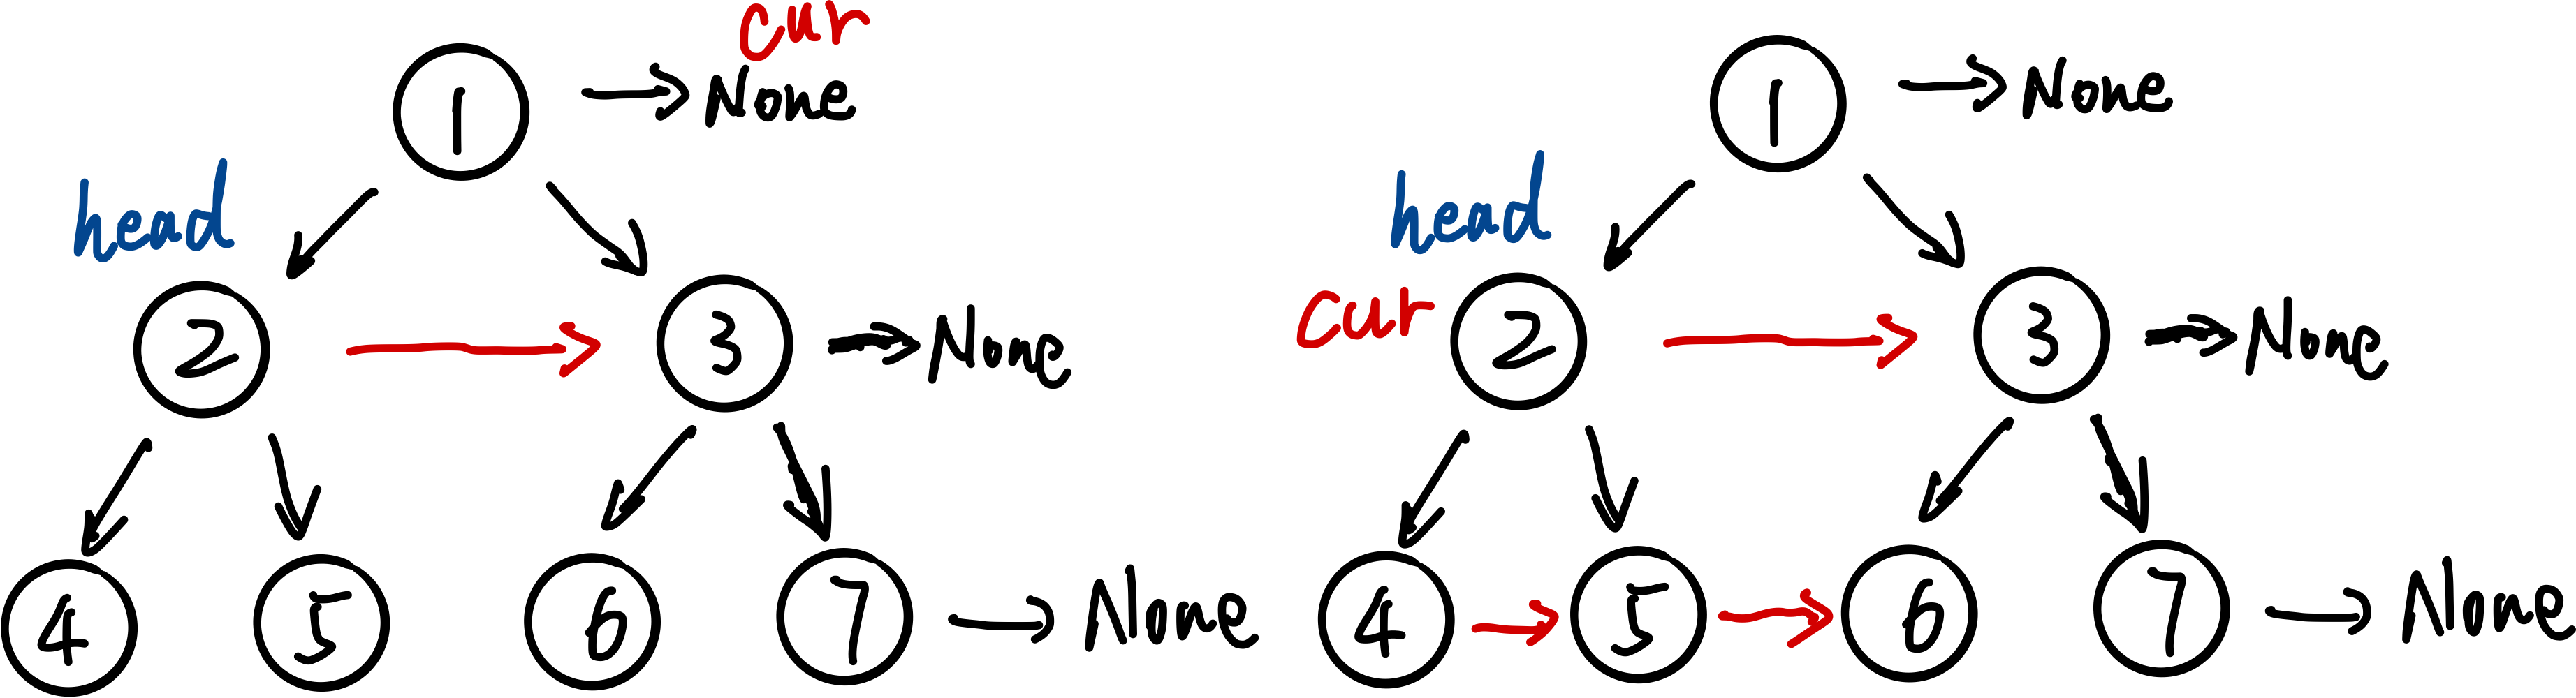 cur
1 None
head
2 3 None
4 5 6 7 None
1 None
head
cur 2 3 None
4 5 6 7 None